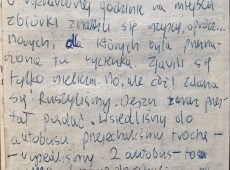 O wyznaczonej godzinie na miejscu
zbiórki znaleźli się wszyscy, oprócz
nowych, dla których była przezna-
czona ta wycieka. Zjawili się
tylko nieliczni. No, ale cóż! Zdarza
się! Ruszyliśmy. Deszcz zaraz prze-
stał padać. Wsiedliśmy do
autobusu, przejechaliśmy trochę
wysiedliśmy. Z autobusu